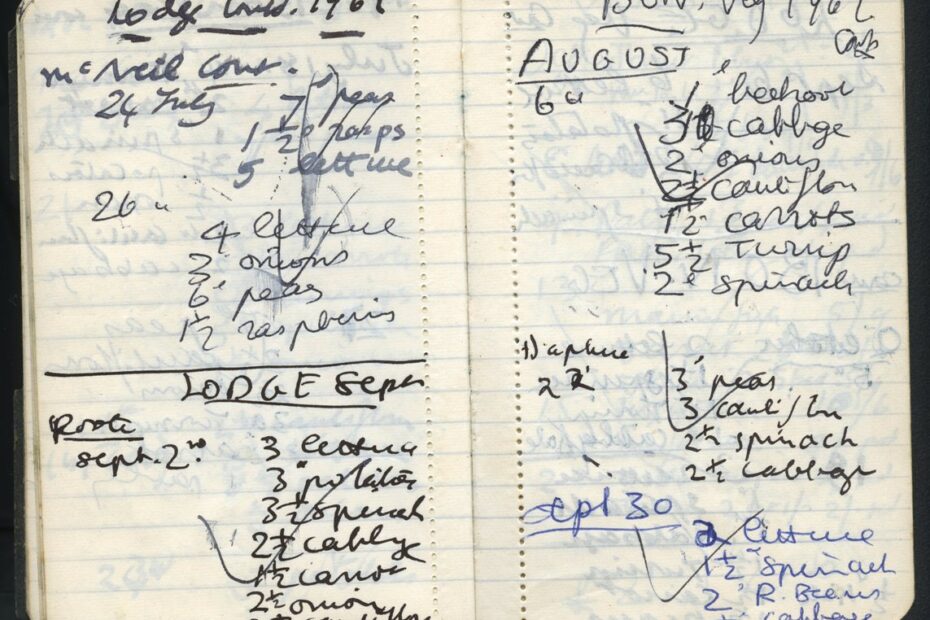 Lodge 1961
McNeil Cour.
24 July 7 peas
1½ rasps
5 lettuce
26 "
4 lettuce
3 onions
6 peas
1½ raspberris
LODGE Sept
Roots
Sept. 2nd 3 lettuce
3 potatoes
3½ spinach
2½ cabbge
1½ carrot
2½ onion
1961
AUGUST
6" beetroot
3 cabbge
2 onions
2½ cauliflou
1½ carrots
5½ Turnip
2 spinach
3 peas
3 cauliflou
2½ spinach
2½ cabbage
Sept 30
2 lettuce
1½ spinach
2 R. Beans
cabbage